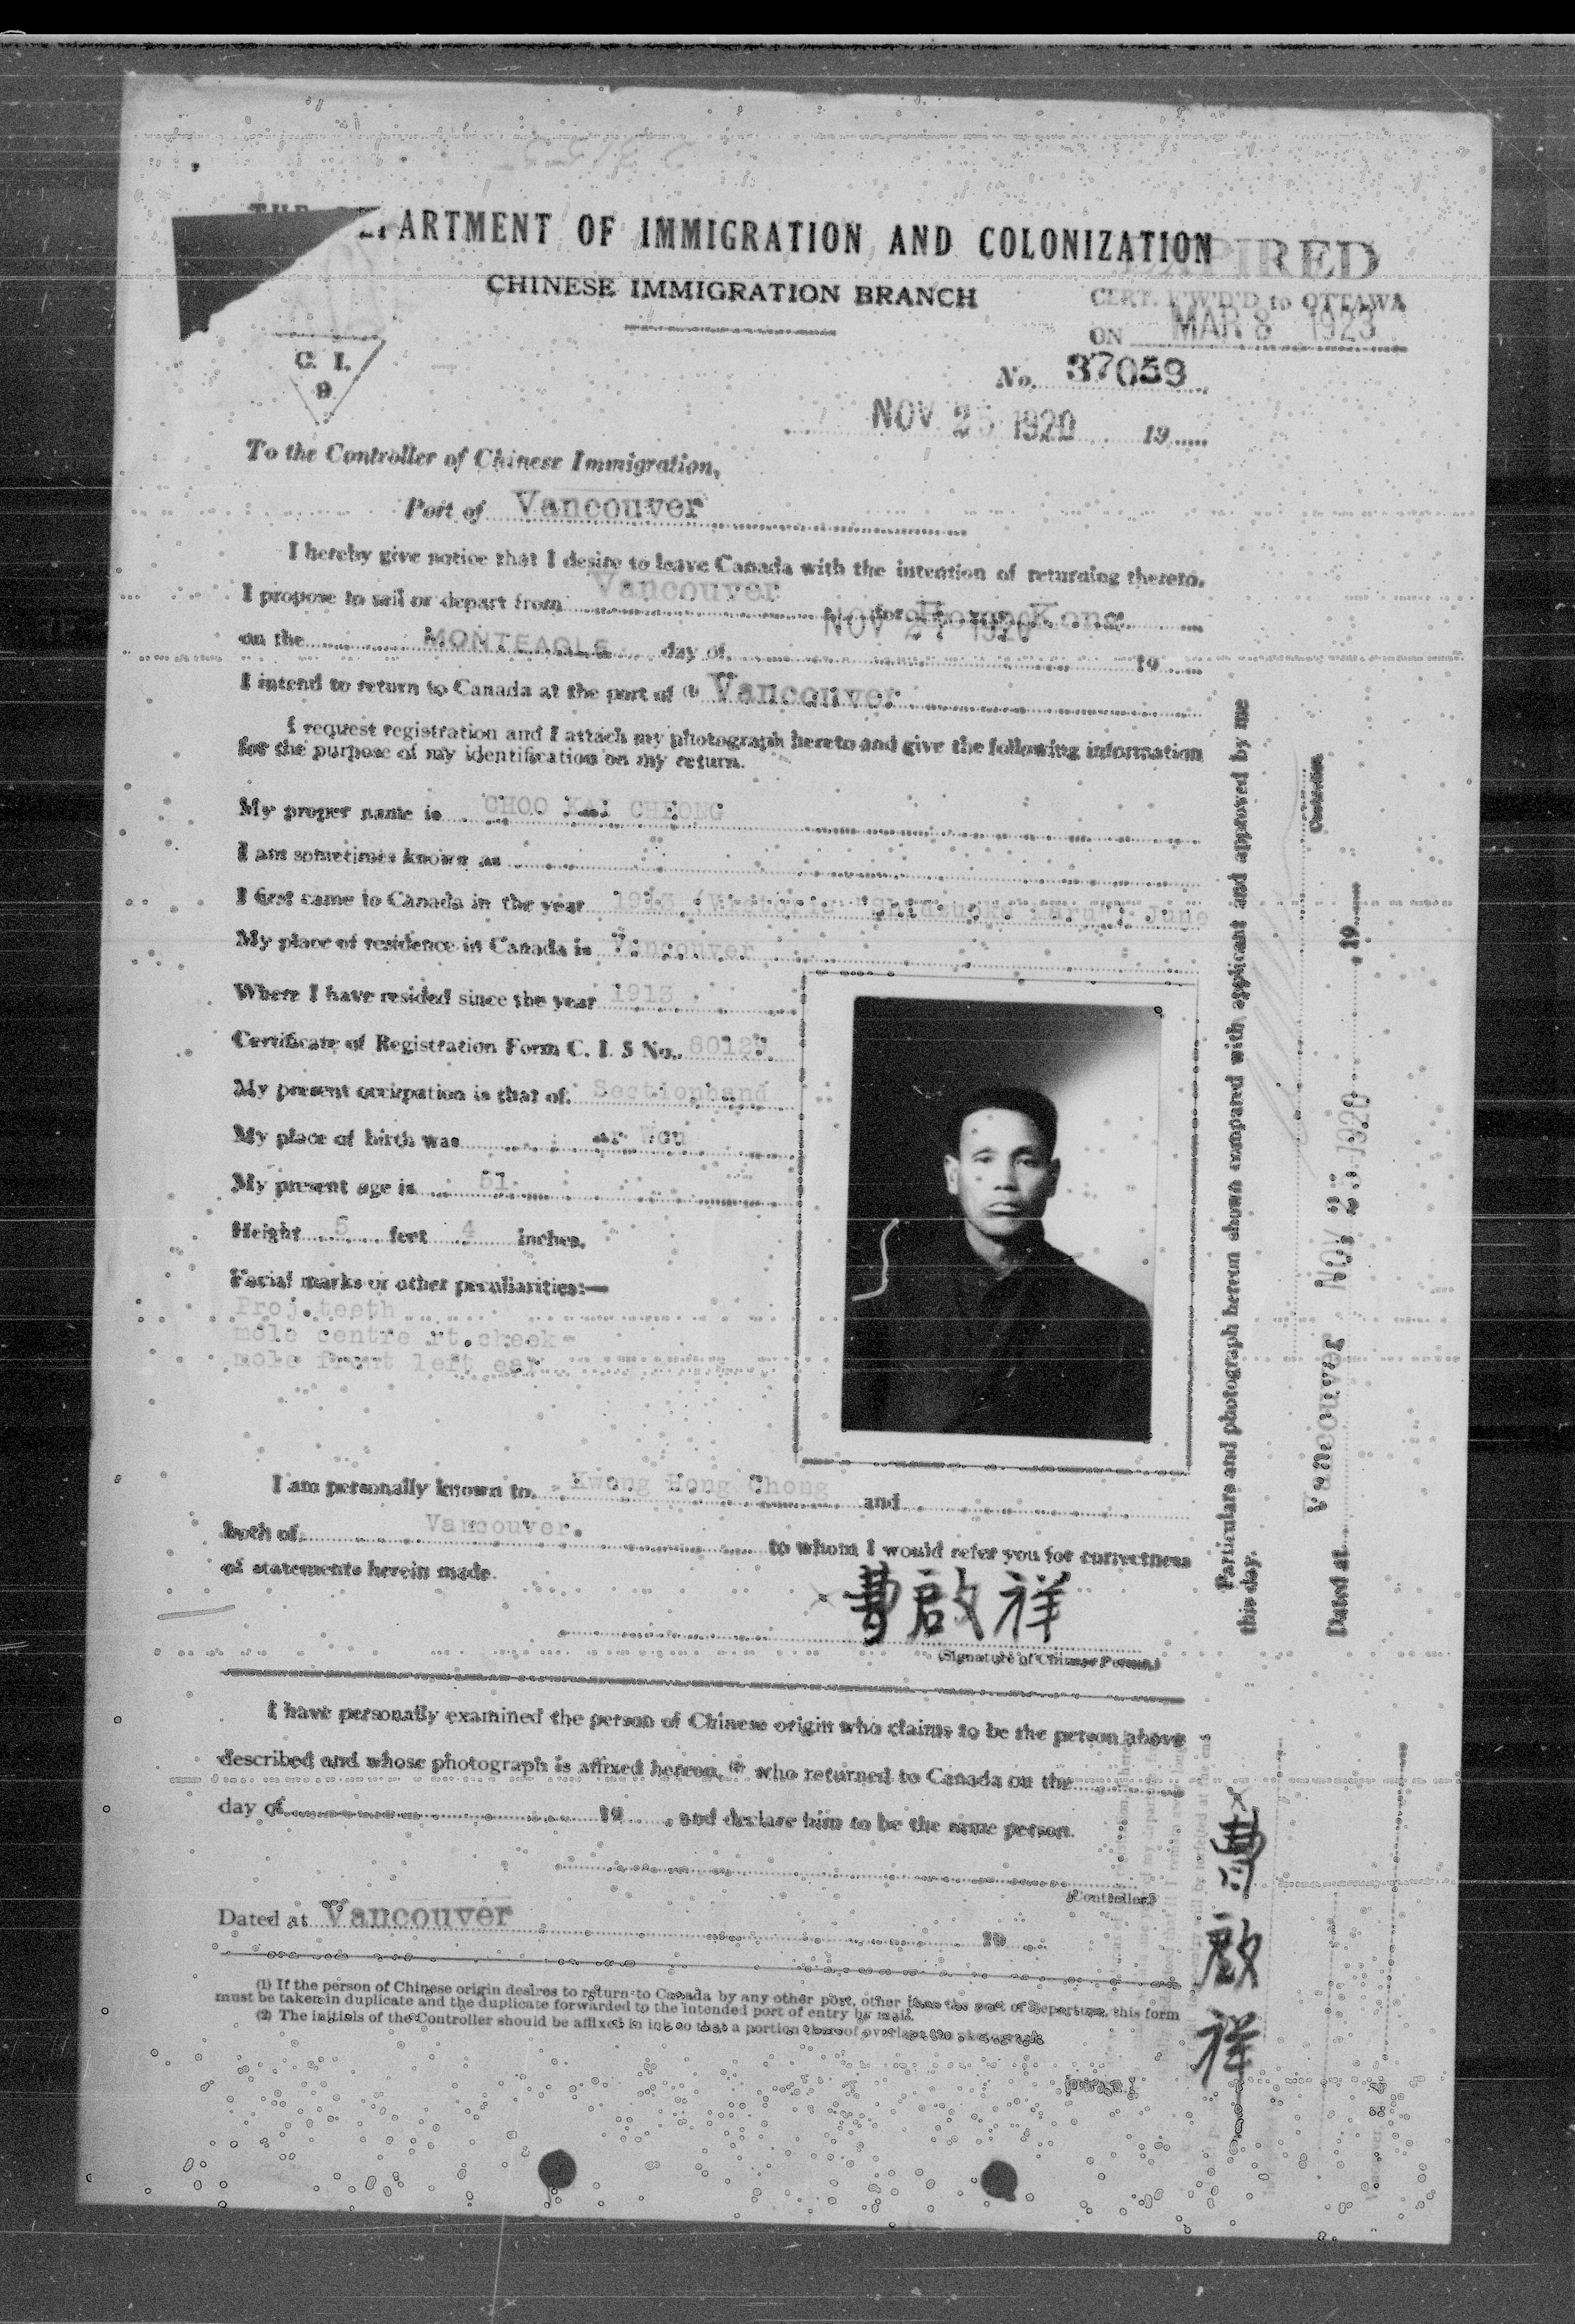 THE DEPARTMENT OF IMMIGRATION AND COLONIZATION
EXPIRED
CHINESE IMMIGRATION BRANCH
CERT. F'W'D'D to OTTAWA
ON MAR 8 1923
C. I.
9
No. 37059
NOV 25 1920 19
To the Controller of Chinese Immigration,
Port of Vancouver
I hereby give notice that I desire to leave Canada with the intention of returning thereto.
I propose to sail or depart from Vancouver for Hong Kong
on the MONTEAGLE day of NOV 27 1920 19
I intend to return to Canada at the port of (1) Vancouver
I request registration and I attach my photograph hereto and give the following information
for the purpose of my identification on my return.
My proper name is CHOO KAI CHEONG
I am sometimes known as
I first came to Canada in the year 1913 (Victoria Maru") June
My place of residence in Canada is Vancouver
Where I have resided since the year 1913
Certificate of Registration Form C. I. 5 No.
My present occupation is that of Sectionhand
My place of birth was
My present age is 51
Height 5 feet 4 inches.
Facial marks or other peculiarities:—
Proj. teeth
mole centre rt cheek
mole front left ear
I am personally known to Kwong Hong Chong and
both of Vancouver. to whom I would refer you for correctness
of statements herein made.
曹啟祥
(Signature of Chinese Person.)
I have personally examined the person of Chinese origin who claims to be the person above
described and whose photograph is affixed hereon, (2) who returned to Canada on the
day of 19 , and declare him to be the same person.
(Controller.)
Dated at Vancouver 19
(1) If the person of Chinese origin desires to return to Canada by any other port, other than the port of departure, this form
must be taken in duplicate and the duplicate forwarded to the intended port of entry by mail.
(2) The initials of the Controller should be affixed in ink so that a portion thereof overlaps the photograph
Particulars and photograph hereon shown compared with applicant and approved by me
this day.
Controller.
Dated at Vancouver NOV 25 1920 19
曹啟祥